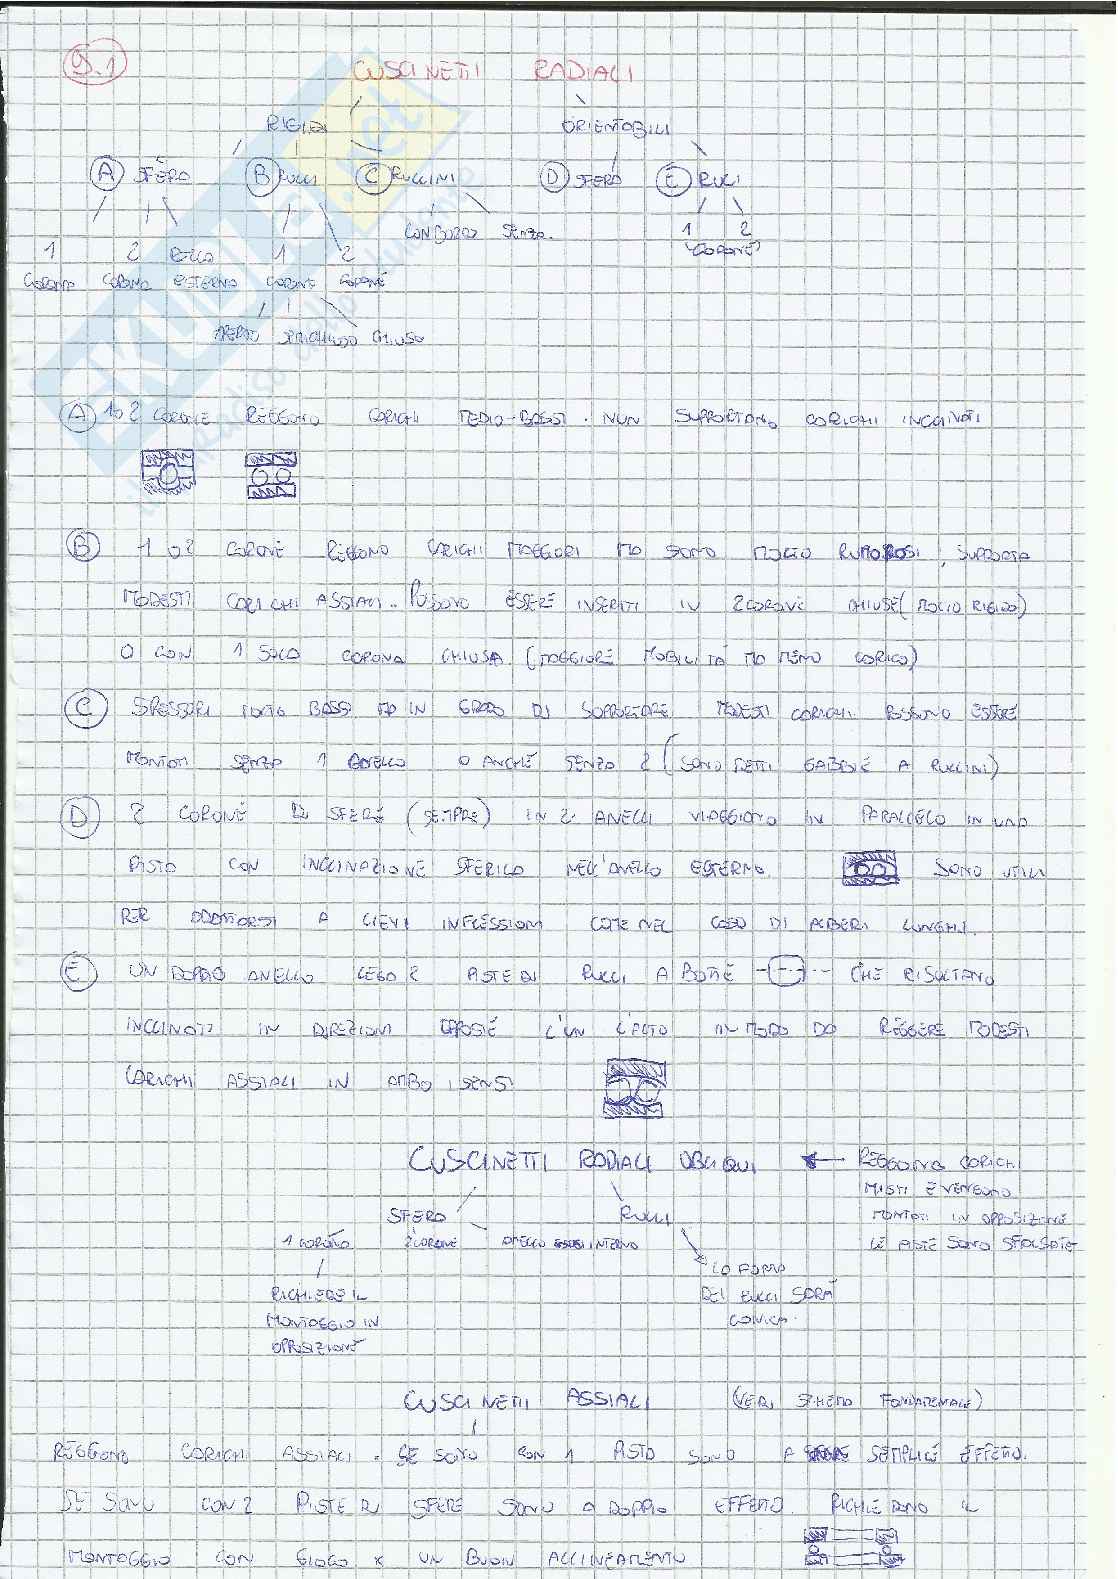 9.1
CUSCINETTI RADIALI
RIGIDI ORIENTABILI
A SFERA B RULLI C RULLINI D SFERA E RULLI
CON BORDO SENZA
1 2 1 2 1 2
CORONA CORONA ESTERNO CORONE CORONE (CORONE)
APERTO CHIUSO
A 1 o 2 CORONE REGGONO CARICHI MEDIO-BASSI. NON SUPPORTANO CARICHI INCLINATI
B 1 o 2 CORONE REGGONO CARICHI MAGGIORI MA SONO MOLTO RUMOROSI, SUPPORTA
MODESTI CARICHI ASSIALI. POSSONO ESSERE INSERITI IN 2 CORONE CHIUSE (MOLTO RIGIDO)
O CON 1 SOLA CORONA CHIUSA (MAGGIORE MOBILITÀ MA MENO CARICO)
C SPESSORI MOLTO BASSI MA IN GRADO DI SOPPORTARE MODESTI CARICHI. POSSONO ESSERE
MONTATI SENZA 1 ANELLO O ANCHE SENZA 2 (SONO DETTI GABBIE A RULLINI)
D 2 CORONE DI SFERE (SEMPRE) IN 2 ANELLI VIAGGIANO IN PARALLELO IN UNA
PISTA CON INCLINAZIONE SFERICA NELL'ANELLO ESTERNO. SONO UTILI
PER ADATTARSI A LIEVI INFLESSIONI COME NEL CASO DI ALBERI LUNGHI.
E UN DOPPIO ANELLO LEGA 2 PISTE DI RULLI A BOTTE CHE RISULTANO
INCLINATI IN DIREZIONI OPPOSTE L'UN L'ALTRO IN MODO DA REGGERE MODESTI
CARICHI ASSIALI IN AMBO I SENSI
CUSCINETTI RADIALI OBLIQUI ← REGGONO CARICHI
MISTI E VENGONO
MONTATI IN OPPOSIZIONE
LE PISTE SONO SFALSATE
SFERA RULLI
1 CORONA 2 CORONE ANELLO INTERNO
LA FORMA
DEI RULLI SARÀ
CONICA.
RICHIEDE IL
MONTAGGIO IN
OPPOSIZIONE
CUSCINETTI ASSIALI (VEDI SCHEMA FONDAMENTALE)
REGGONO CARICHI ASSIALI. SE SONO CON 1 PISTA SONO A SEMPLICE EFFETTO.
SE SONO CON 2 PISTE DI SFERE SONO A DOPPIO EFFETTO. RICHIEDONO IL
MONTAGGIO CON GIOCO X UN BUON ALLINEAMENTO